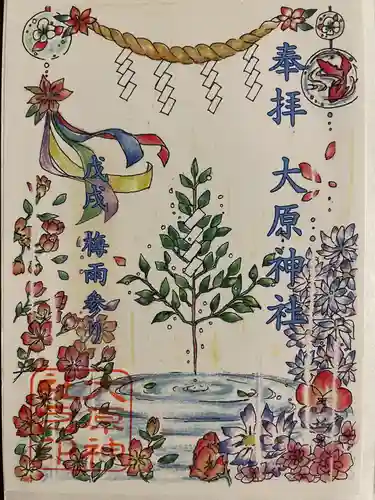 奉拝 大原神社
戊戌 梅雨参り
大原神